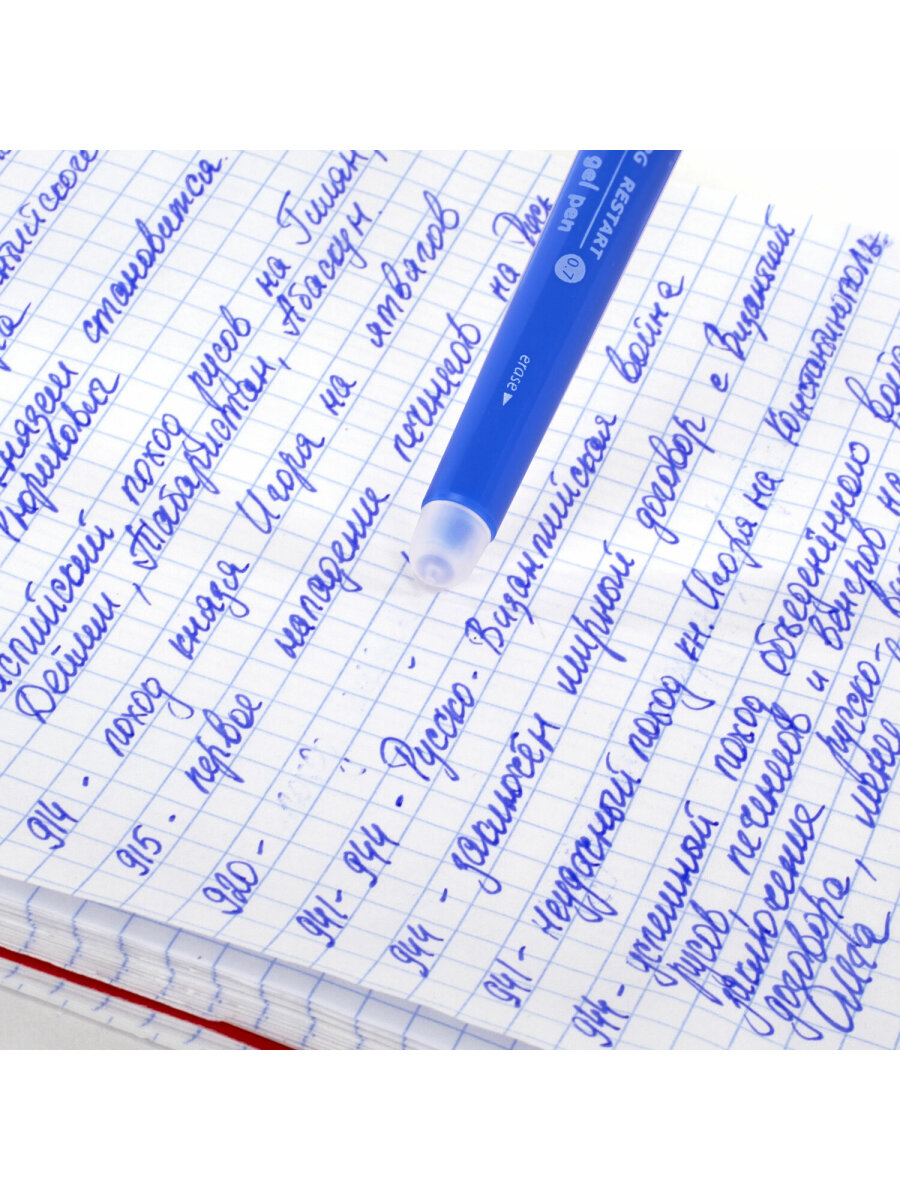 становится
Рюрикович
поход русов на Гилан,
Дейлем, Табаристан, Абаскун.
914 - поход князя Игоря на ятвягов
915 - первое нападение печенегов на Русь
920 -
941 - 944 - Русско - Византийская война
944 - заключён мирный договор с Византией
941 - неудачный поход кн. Игоря на Константинополь
944 - успешный поход объединённого
русов, печенегов и венгров на
заключение русско-
договора, менее
RESTART
gel pen
0.7
erase